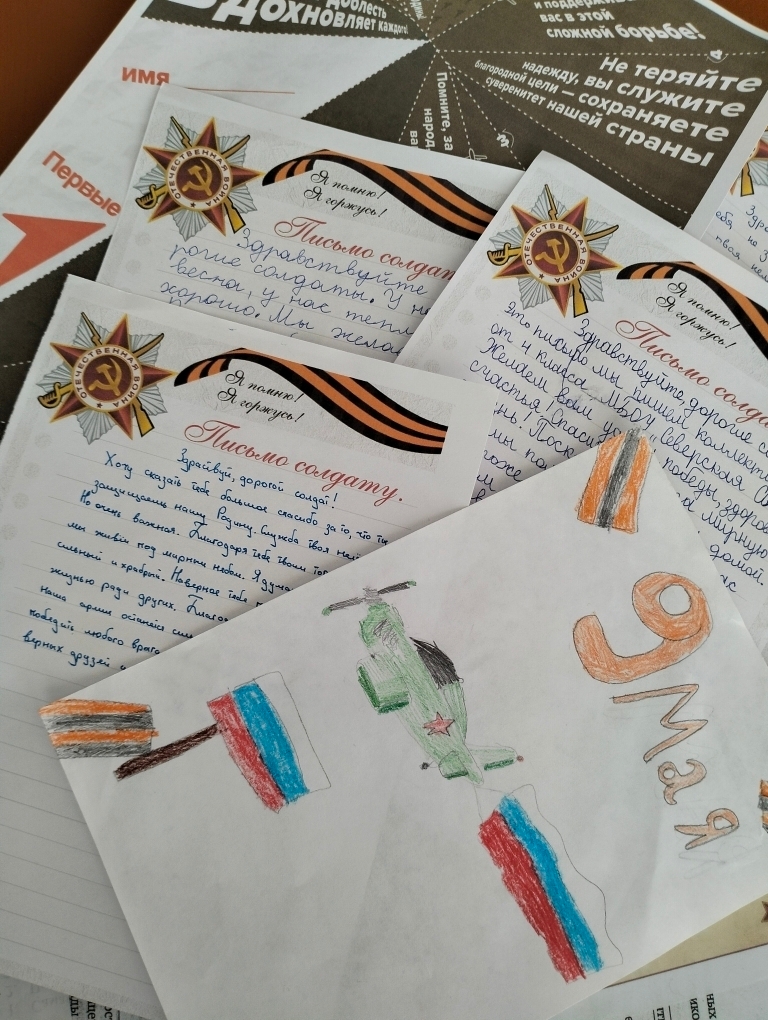 доблесть
ВДОХНОВЛЯЕТ каждого!
и поддержив
вас в этой
сложной борьбе!
Не теряйте
надежду, вы служите
благородной цели — сохраняете
суверенитет нашей страны
Помните, за
народ
ва
ИМЯ
Первые
ОТЕЧЕСТВЕННАЯ ВОЙНА
Я помню!
Я горжусь!
Письмо солдат
Здравствуйте
рогие солдаты. У на
весна, у нас тепл
хорошо. Мы жела
ОТЕЧЕСТВЕННАЯ ВОЙНА
Я помню!
Я горжусь!
Письмо солда
Здравствуйте дорогие с
Это письмо мы пишем коллекти
от 4 класса МБОУ Северская С
Желаем вам
победы, здоров
счастья. Спаси
мирную
нь! Поск
мы по
домой.
ОТЕЧЕСТВЕННАЯ ВОЙНА
Я помню!
Я горжусь!
Письмо солдату.
Здравствуй, дорогой солдат!
Хочу сказать тебе большое спасибо за то, что ты
защищаешь нашу Родину. Служба твоя нел
Но очень важная. Благодаря тебе твоим тов
мы живём под мирным небом. Я дума
сильный и храбрый. Наверное тебе
жизнью ради других. Благо
наша армия останется сил
победить любого врага
верных друзей и
9
Мая